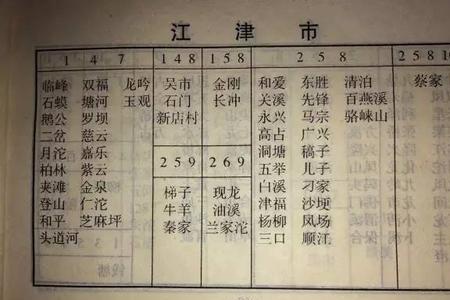 江津市
1 4 7
临峰 双福 龙吟
石蟆 塘河 玉观
鹅公 罗坝
二岔 慈云
月沱 嘉乐
柏林 紫云
夹滩 金泉
登山 仁沱
和平 芝麻坪
头道河
1 4 8
吴市
石门
新店村
2 5 9
梯子
牛羊
秦家
1 5 8
金刚
长冲
2 6 9
现龙
油溪
兰家沱
2 5 8
和爱 东胜 清泊
关溪 先锋 百燕溪
永兴 马宗 骆崃山
高占 广兴
洞塘 稿子
五举 儿子
白溪 刁家
津福 沙埂
杨柳 凤场
三口 顺江
2 5 8 10
蔡家